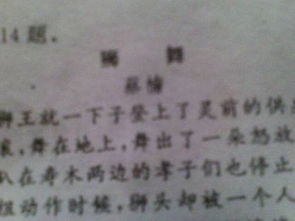 14 题.
狮 舞
蔡楠
狮王就一下子登上了灵前的供
衮,舞在地上,舞出了一朵怒放
趴在寿木两边的孝子们也停止
组动作时候,狮头却被一个人